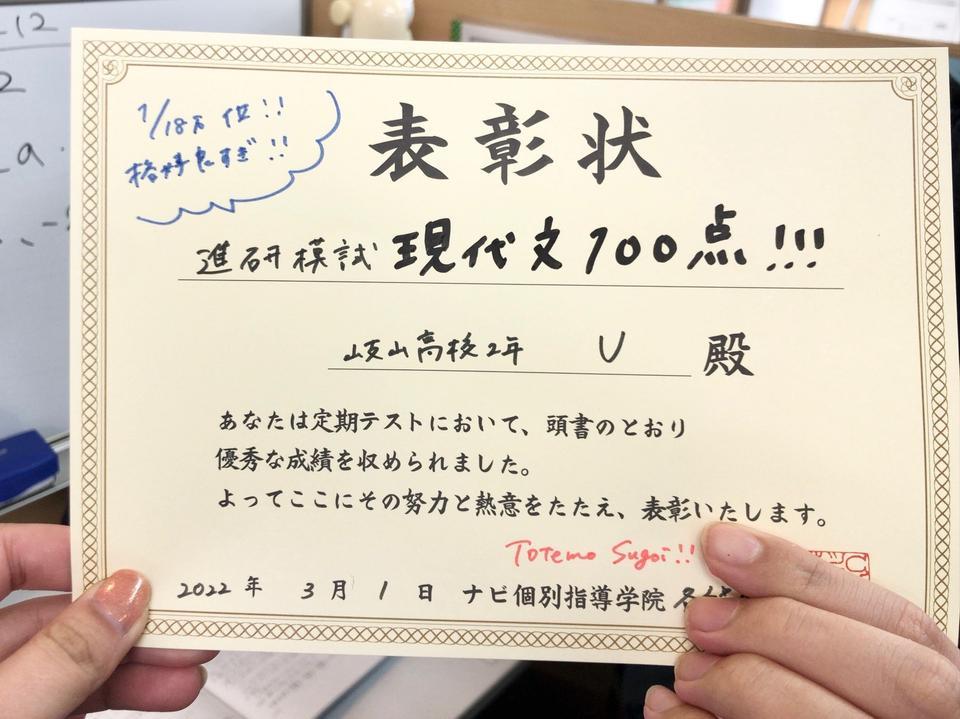 1/18万位!!
格好良すぎ!!
表彰状
進研模試 現代文100点!!!
岐山高校2年 U 殿
あなたは定期テストにおいて、頭書のとおり
優秀な成績を収められました。
よってここにその努力と熱意をたたえ、表彰いたします。
Totemo Sugoi!!
2022年 3月 1日 ナビ個別指導学院
12
2
a.